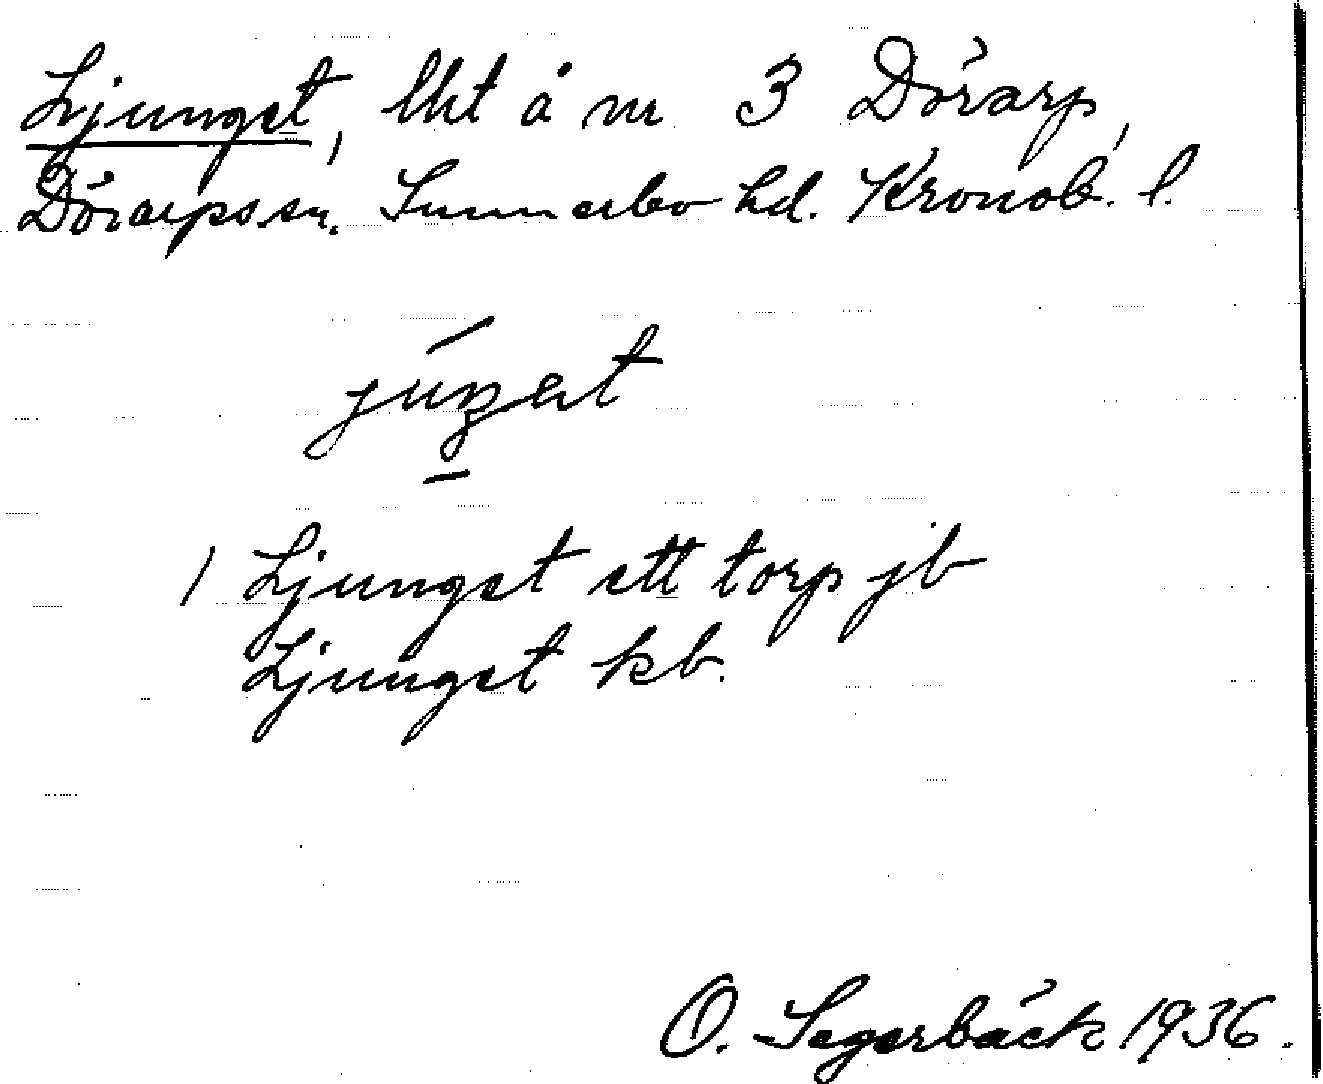 Ljunget, lht å nr 3 Dörarp,
Dörarps sn. Sunnerbo hd. Kronob. l.
júŋət
1 Ljunget ett torp jb
Ljunget kb.
O. Segerbäck 1936.